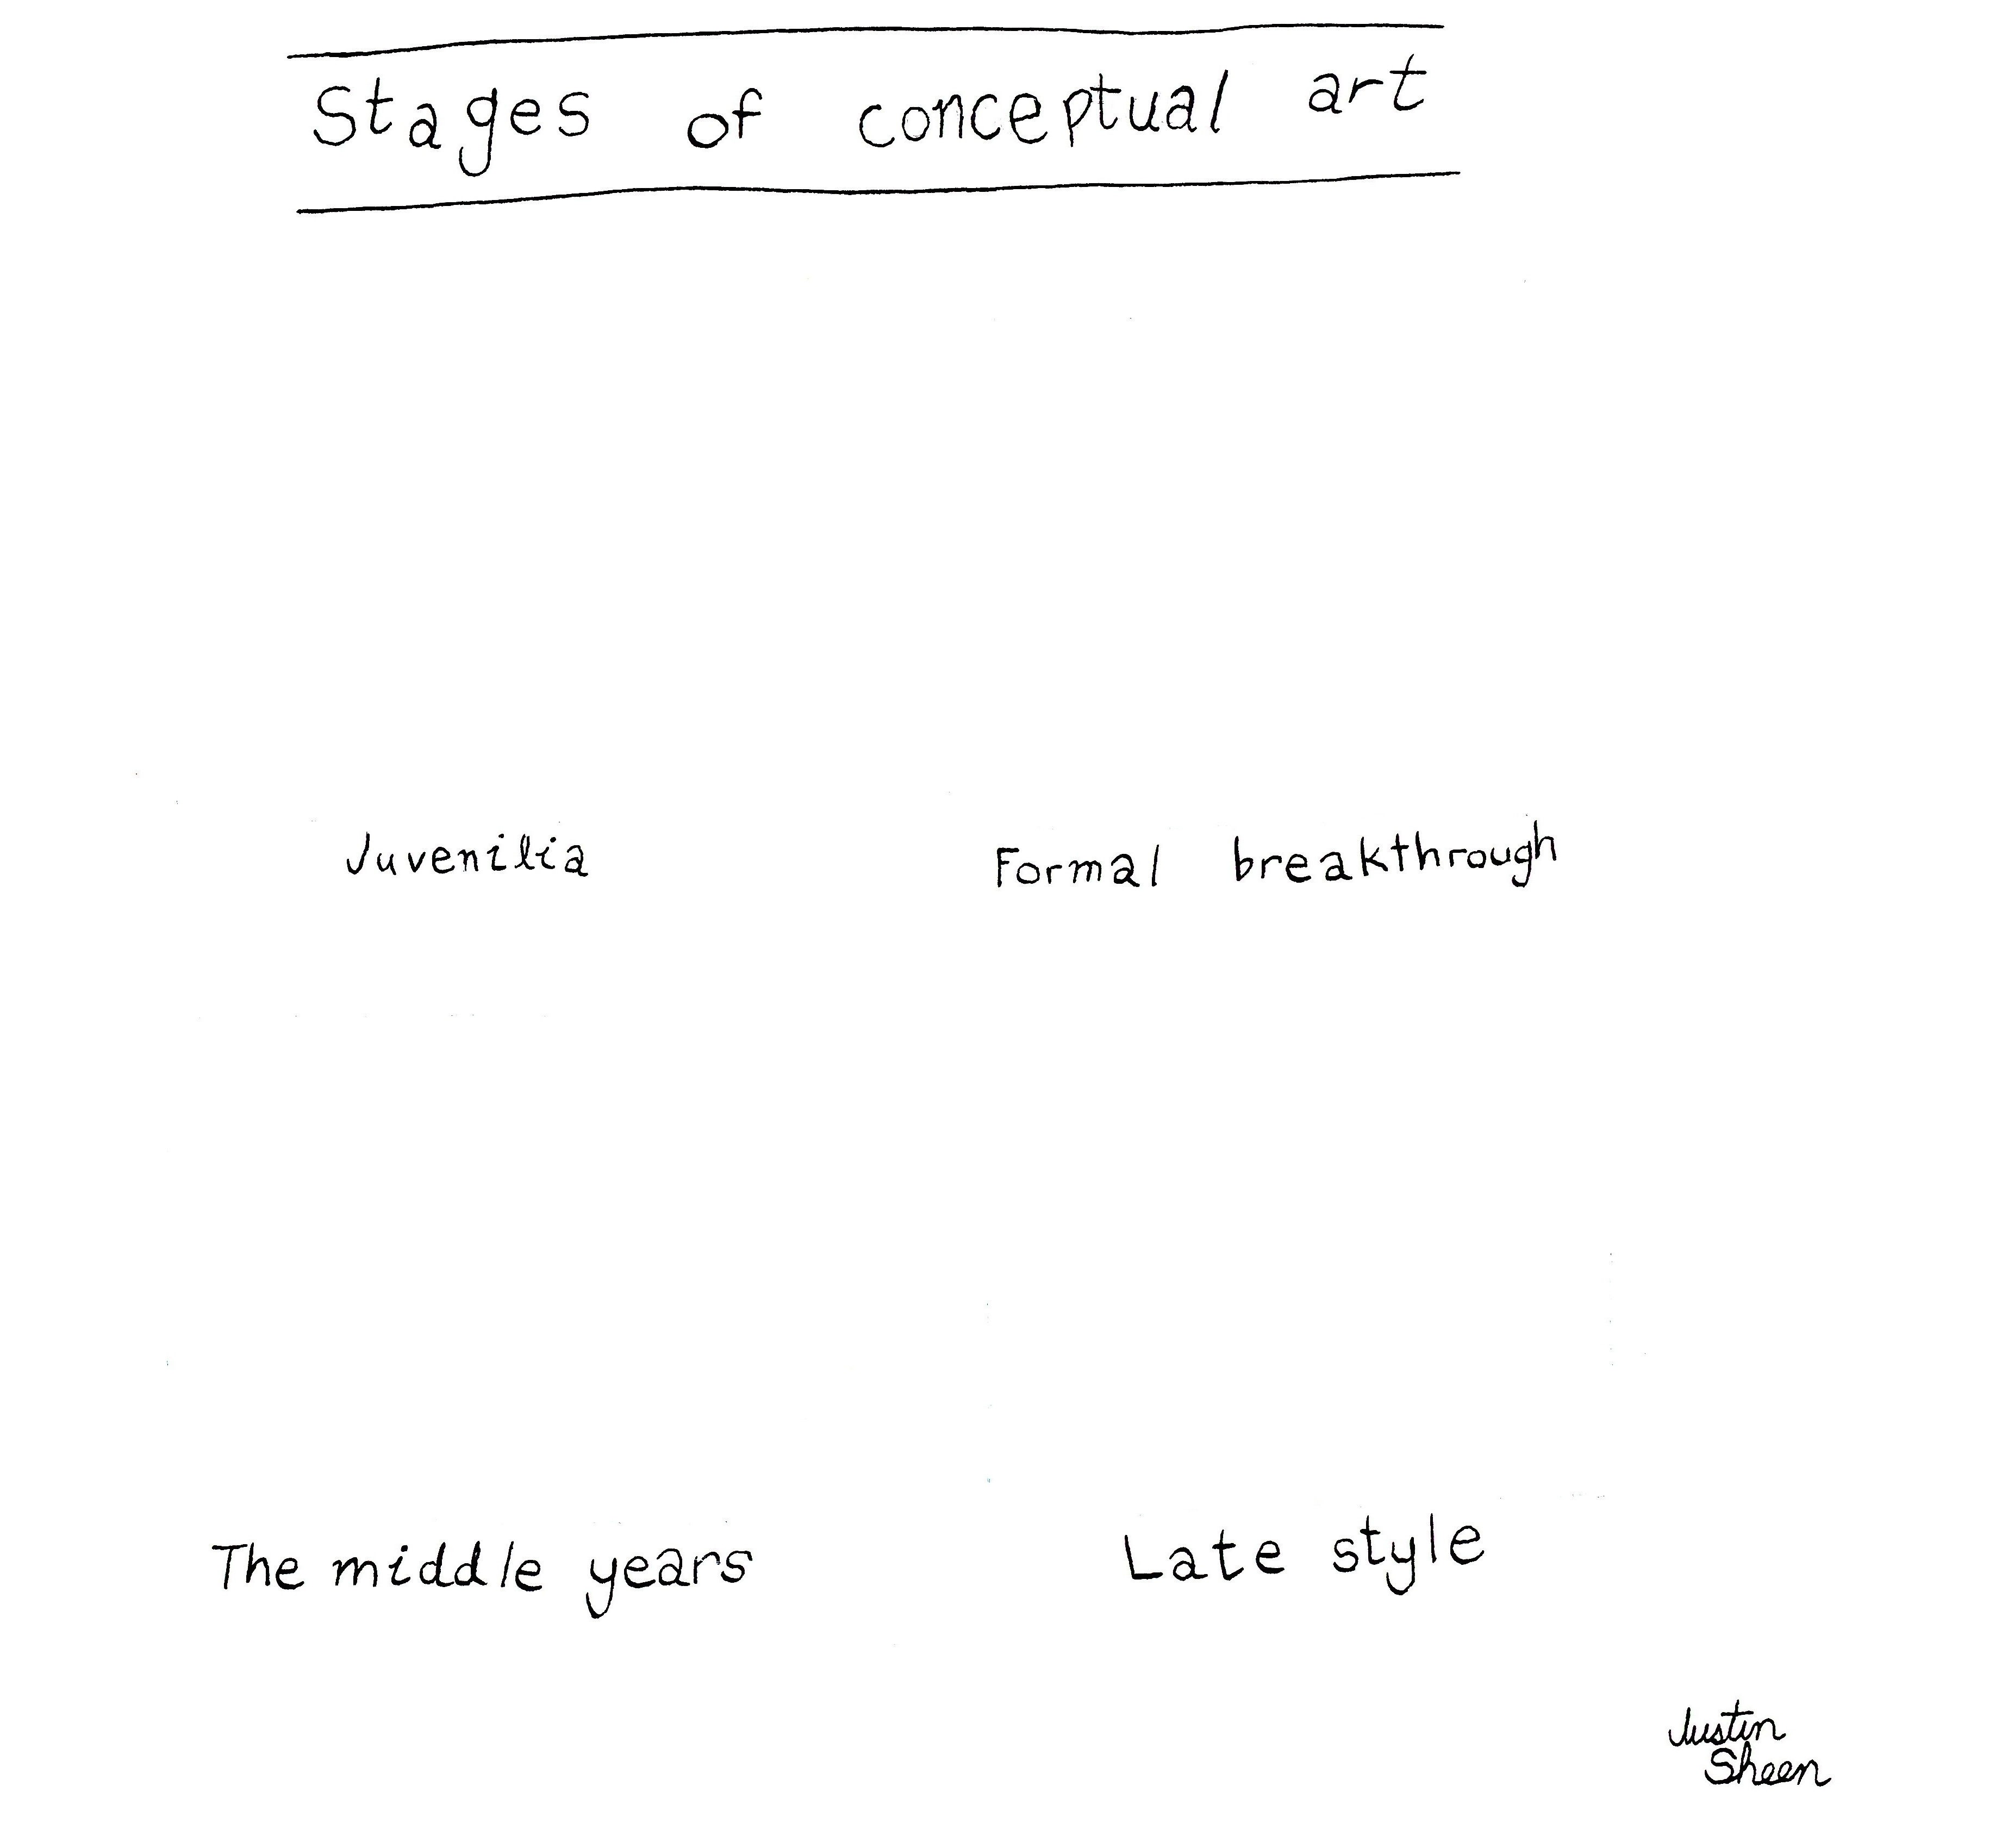 Stages of conceptual art
Juvenilia
Formal breakthrough
The middle years
Late style
Justin
Sheen